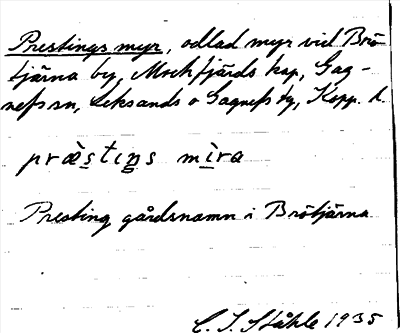 Prestings myr, odlad myr vid Brö-
tjärna by, Mockfjärds kap, Gag-
nefs sn, Leksands o Gagnefs tg, Kopp. l.
præ̀stiŋs mìra
Presting gårdsnamn i Brötjärna
C. I. Ståhle 1935